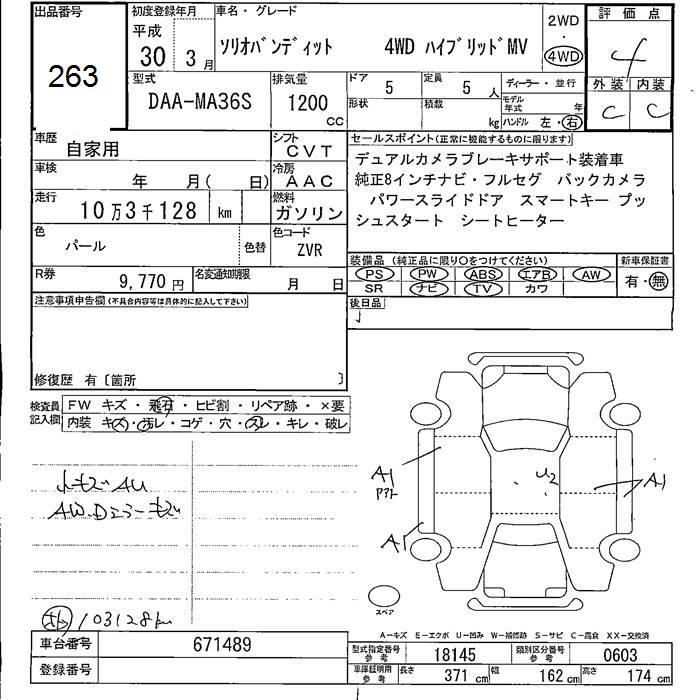 出品番号
263
初度登録年月
平成
30年3月
車名・グレード
ソリオバンディット 4WD ハイブリッドMV
2WD
・
4WD
評価点
4
外装 内装
C C
型式
DAA-MA36S
排気量
1200
CC
ドア 5
定員 5人
形状
積載 kg
ディーラー・並行
モデル年式 年
ハンドル 左・右
車歴
自家用
シフト
CVT
車検
年 月( 日)
冷房
AAC
走行
10万3千128 km
燃料
ガソリン
色
パール
色替
色コード
ZVR
R券
9,770円
名変通知期限
月 日
セールスポイント(正常に機能するものに限ります)
デュアルカメラブレーキサポート装着車
純正8インチナビ・フルセグ バックカメラ
パワースライドドア スマートキー プッ
シュスタート シートヒーター
装備品(純正品に限り○をつけてください)
PS PW ABS エアB AW
SR ナビ TV カワ
新車保証書
有・無
後日品
注意事項申告欄(不具合内容等は具体的に記入して下さい)
修復歴 有〔箇所 〕
検査員記入欄
FW キズ・飛石・ヒビ割・リペア跡・×要
内装 キズ・汚レ・コゲ・穴・スレ・キレ・破レ
小キズAU
AW.Dミラーキズ
103128km
A1
ドアト
A1
U2
A1
スペア
A-キズ E-エクボ U-凹み W-補修跡 S-サビ C-腐食 XX-交換済
車台番号
671489
登録番号
型式指定番号 参考
18145
類別区分番号 参考
0603
車庫証明用 参考
長さ 371 cm
幅 162 cm
高さ 174 cm